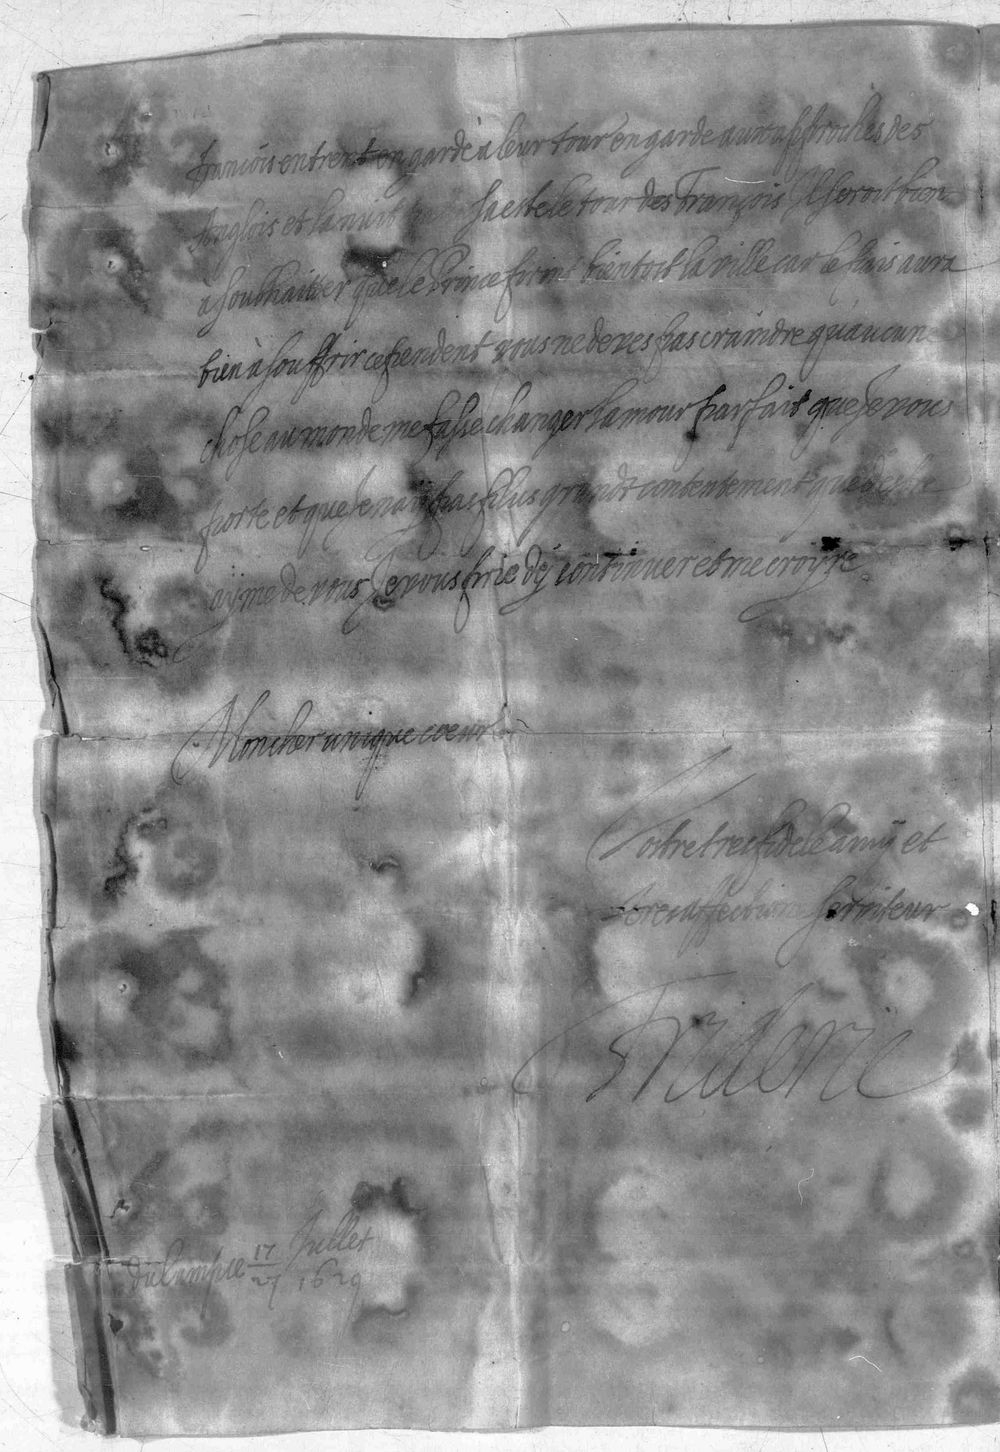 francois entrent en garde a leur tour en garde aux approches des
Anglois et la nuit passée a esté le tour des François Il seroit bien
a souhaitter que le Prince prins bientost la ville car le païs aura
bien à souffrir cependent vous ne deves pas craindre qu'aucune
chose au monde me fasse changer l'amour parfait que Je vous
porte et que Je n'aÿ pas plus grandt contentement que d'estre
aÿmé de vous Je vous prie d'ÿ continuer et me croÿre
Mon cher unique coeur
Vostre tresfidele amÿ et
tresaffectioné serviteur
Frideric
du Campe 17/27 Jullet 1629